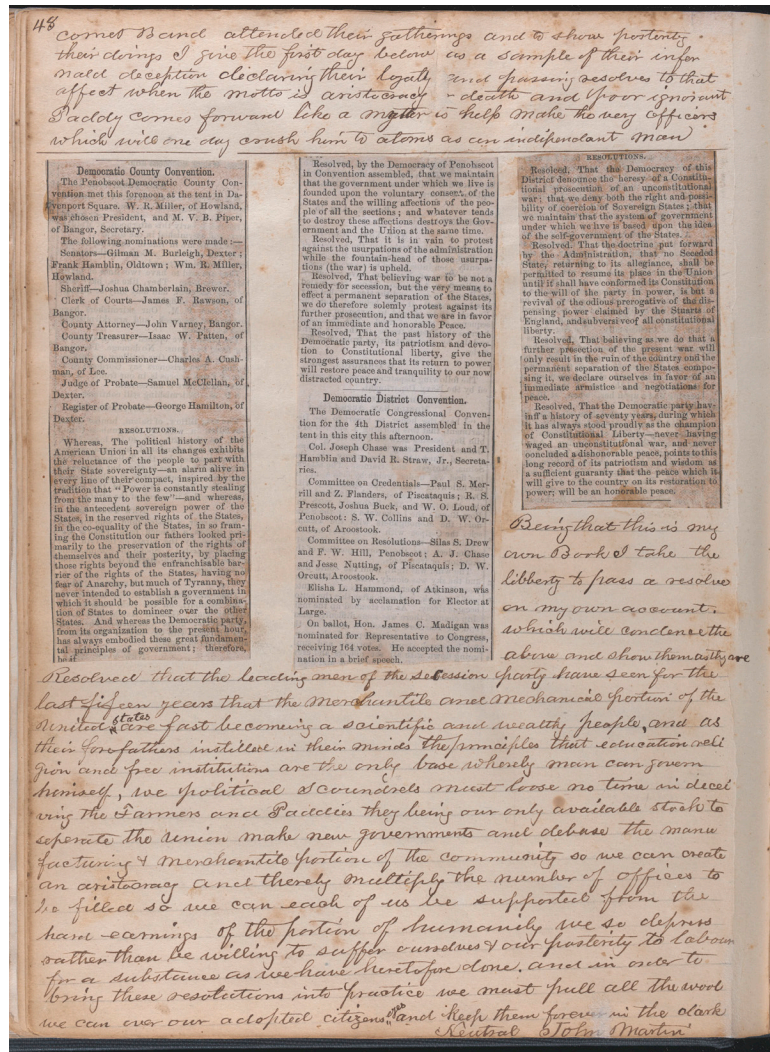 48
cornet Band attended their gatherings and to show posterity
their doings I give the first day below as a sample of their infer
nald deception declaring their loyalty and passing resolves to that
affect when the motto is aristocracy - death and poor ignorant
Paddy comes forward like a martyr is help make the very officers
which will one day crush him to atoms as an indipendant man
Democratic County Convention.
The Penobscot Democratic County Con-
vention met this forenoon at the tent in Da-
venport Square. W. R. Miller, of Howland,
was chosen President, and M. V. B. Piper,
of Bangor, Secretary.
The following nominations were made:—
Senators—Gilman M. Burleigh, Dexter;
Frank Hamblin, Oldtown; Wm. R. Miller,
Howland.
Sheriff—Joshua Chamberlain, Brewer.
Clerk of Courts—James F. Rawson, of
Bangor.
County Attorney—John Varney, Bangor.
County Treasurer—Isaac W. Patten, of
Bangor.
County Commissioner—Charles A. Cush-
man, of Lee.
Judge of Probate—Samuel McClellan, of
Dexter.
Register of Probate—George Hamilton, of
Dexter.
RESOLUTIONS.
Whereas, The political history of the
American Union in all its changes exhibits
the reluctance of the people to part with
their State sovereignty—an alarm alive in
every line of their compact, inspired by the
tradition that "Power is constantly stealing
from the many to the few"—and whereas,
in the antecedent sovereign power of the
States, in the reserved rights of the States,
in the co-equality of the States, in so fram-
ing the Constitution our fathers looked pri-
marily to the preservation of the rights of
themselves and their posterity, by placing
those rights beyond the enfranchisable bar-
rier of the rights of the States, having no
fear of Anarchy, but much of Tyranny, they
never intended to establish a government in
which it should be possible for a combina-
tion of States to domineer over the other
States. And whereas the Democratic party,
from its organization to the present hour,
has always embodied these great fundamen-
tal principles of government; therefore,
be it
Resolved, by the Democracy of Penobscot
in Convention assembled, that we maintain
that the government under which we live is
founded upon the voluntary consent of the
States and the willing affections of the peo-
ple of all the sections; and whatever tends
to destroy these affections destroys the Gov-
ernment and the Union at the same time.
Resolved, That it is in vain to protest
against the usurpations of the administration
while the fountain-head of those usurpa-
tions (the war) is upheld.
Resolved, That believing war to be not a
remedy for secession, but the very means to
effect a permanent separation of the States,
we do therefore solemnly protest against its
further prosecution, and that we are in favor
of an immediate and honorable Peace.
Resolved, That the past history of the
Democratic party, its patriotism and devo-
tion to Constitutional liberty, give the
strongest assurances that its return to power
will restore peace and tranquility to our now
distracted country.
Democratic District Convention.
The Democratic Congressional Conven-
tion for the 4th District assembled in the
tent in this city this afternoon.
Col. Joseph Chase was President and T.
Hamblin and David R. Straw, Jr., Secreta-
ries.
Committee on Credentials—Paul S. Mer-
rill and Z. Flanders, of Piscataquis; R. S.
Prescott, Joshua Buck, and W. O. Loud, of
Penobscot: S. W. Collins and D. W. Or-
cutt, of Aroostook.
Committee on Resolutions—Silas S. Drew
and F. W. Hill, Penobscot; A. J. Chase
and Jesse Nutting, of Piscataquis; D. W.
Orcutt, Aroostook.
Elisha L. Hammond, of Atkinson, was
nominated by acclamation for Elector at
Large.
On ballot, Hon. James C. Madigan was
nominated for Representative to Congress,
receiving 164 votes. He accepted the nomi-
nation in a brief speech.
RESOLUTIONS.
Resolved, That the Democracy of this
District denounce the heresy of a Constitu-
tional prosecution of an unconstitutional
war; that we deny both the right and possi-
bility of coercion of Sovereign States; that
we maintain that the system of government
under which we live is based upon the idea
of the self-government of the States.
Resolved. That the doctrine put forward
by the Administration, that no Seceded
State, returning to its allegiance, shall be
permitted to resume its place in the Union
until it shall have conformed its Constitution
to the will of the party in power, is but a
revival of the odious prerogative of the dis-
pensing power claimed by the Stuarts of
England, and subversive of all constitutional
liberty.
Resolved, That believing as we do that a
further prosecution of the present war will
only result in the ruin of the country and the
permanent separation of the States compo-
sing it, we declare ourselves in favor of an
immediate armistice and negotiations for
peace.
Resolved, That the Democratic party hav-
inff a history of seventy years, during which
it has always stood proudly as the champion
of Constitutional Liberty—never having
waged an unconstitutional war, and never
concluded a dishonorable peace, points to this
long record of its patriotism and wisdom as
a sufficient guaranty that the peace which it
will give to the country on its restoration to
power; will be an honorable peace.
Being that this is my
own Book I take the
libberty to pass a resolve
on my own account.
which will condence the
above and show them as thy are
Resolved that the leading men of the secession party have seen for the
last fifeen years that the merchantile and mechanical portion of the
United states are fast becomeing a scientific and wealthy people, and as
their forefathers instilled in their minds the principles that education reli
gion and free institutions are the only base whereby man can govern
himself, we political scoundrels must loose no time in decei
ving the Farmers and Paddies they being our only available stock to
seperate the union make new governments and debase the manu
facturing & merchantile portion of the community so we can create
an aristocracy and thereby multiply the number of offices to
be filled so we can each of us be supported from the
hard earnings of the portion of humanity we so depress
rather than be willing to suffer ourselves & our posterity to labour
for a substance as we have heretofore done. and in order to
bring these resolutions into practice we must pull all the wool
we can over our adopted citizens eyes and keep them forever in the dark
Neutral John Martin